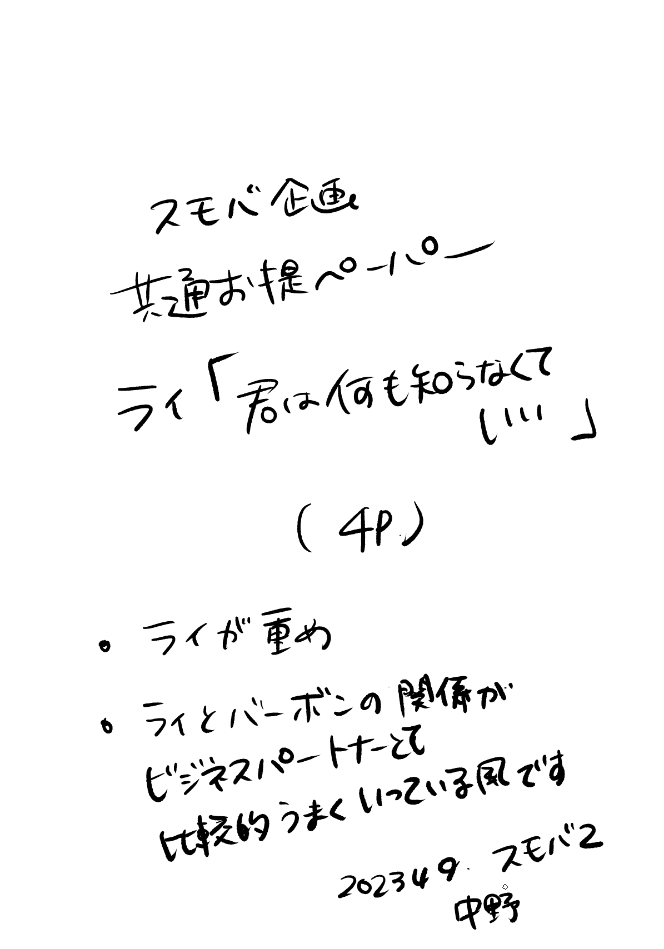 スモバ企画
共通お提ペーパー
ライ「君は何も知らなくて
いい」
(4P)
• ライが重め
• ライとバーボンの関係が
ビジネスパートナーとして
比較的うまくいっている風です
2023 4 9. スモバ2
中野